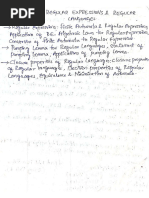 REGULAR EXPRESSIONS & REGULAR
LANGUAGES
→ Regular Expressions: Finite Automata & Regular Expressions,
Application of RE, Algebraic Laws for Regular Expressions,
Conversion of Finite Automata to Regular Expressions
→ Pumping Lemma for Regular Languages: Statement of
Pumping Lemma, Application of Pumping Lemma.
→ Closure properties of Regular Languages: closure properties
of Regular languages, Decision properties of Regular
Languages, Equivalence & Minimization of Automata.